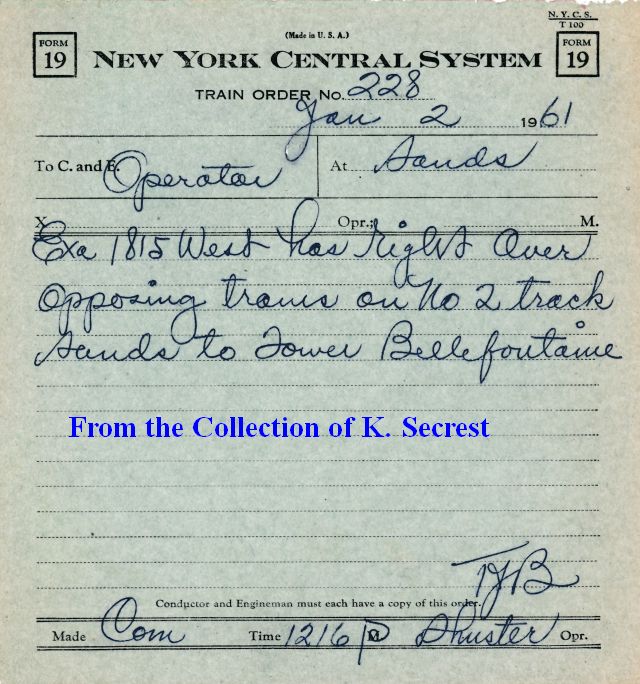 N. Y. C. S.
T 100
(Made in U. S. A.)
FORM 19 NEW YORK CENTRAL SYSTEM FORM 19
TRAIN ORDER No. 228
Jan 2 1961
To C. and E. Operator At Sands
X Opr.; M.
Exa 1815 West has right over
opposing trains on No 2 track
Sands to Tower Bellefontaine
From the Collection of K. Secrest
TJB
Conductor and Engineman must each have a copy of this order.
Made Com Time 1216 P M Shuster Opr.